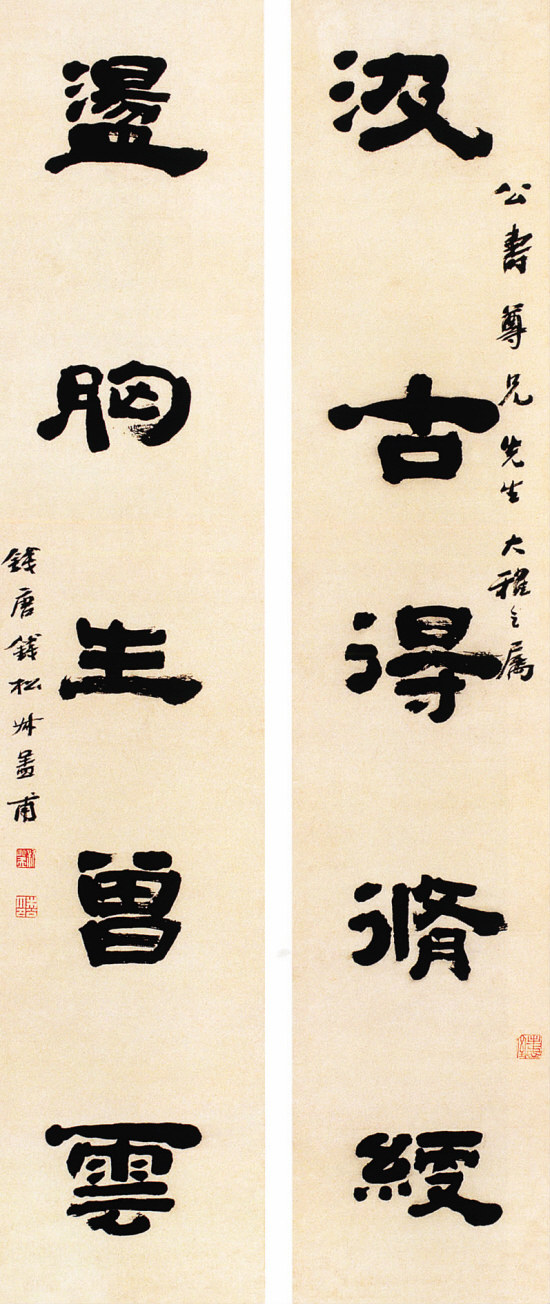 公壽尊兄先生大雅之属
汲古得脩綆
盪胸生曾雲
錢唐錢松叔蓋甫